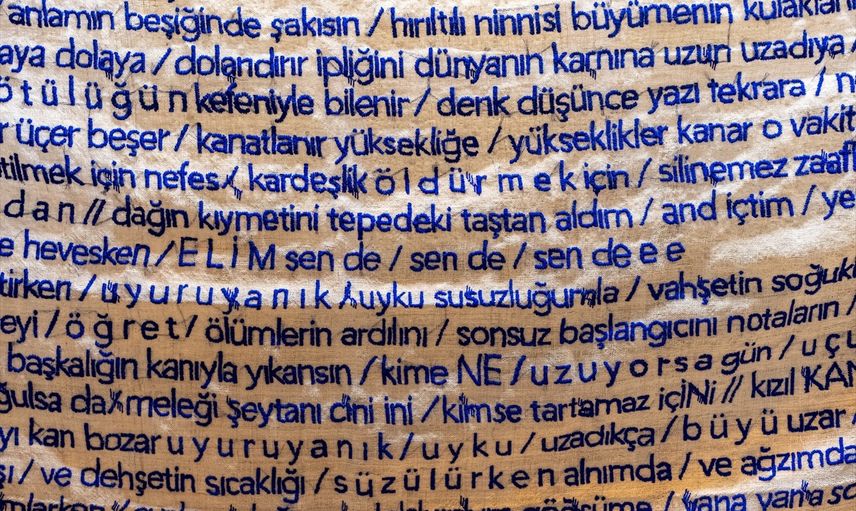 anlamın beşiğinde şakısın / hırıltılı ninnisi büyümenin kulakları
aya dolaya / dolandırır ipliğini dünyanın karnına uzun uzadıya /
ötülüğün kefeniyle bilenir / denk düşünce yazı tekrara / n
r üçer beşer / kanatlanır yüksekliğe / yükseklikler kanar o vakit
tilmek için nefes / kardeşlik ö l d ü r m e k için / silinemez zaafl
d a n // dağın kıymetini tepedeki taştan aldım / and içtim / ye
e hevesken / E L İ M sen de / sen de / sen de e e
tırken / u y u r u y a n ı k / uyku susuzluğumla / vahşetin soğukl
eyi / ö ğ r e t / ölümlerin ardılını / sonsuz başlangıcını notaların /
başkalığın kanıyla yıkansın / kime NE / u z u y o r s a gün / u ç u
ğulsa da / meleği şeytanı cini ini / kimse tartamaz içiNi // kızıl KAN
yı kan bozar u y u r u y a n ı k / u y k u / uzadıkça / b ü y ü uzar /
şı / ve dehşetin sıcaklığı / s ü z ü l ü r k e n alnımda / ve ağzımda
/ yana yana